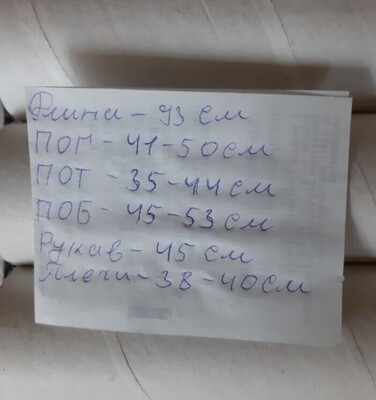 Длина - 93 см
ПОГ - 41-50 см
ПОТ - 35-44 см
ПОБ - 45-53 см
Рукав - 45 см
Плечи - 38-40 см